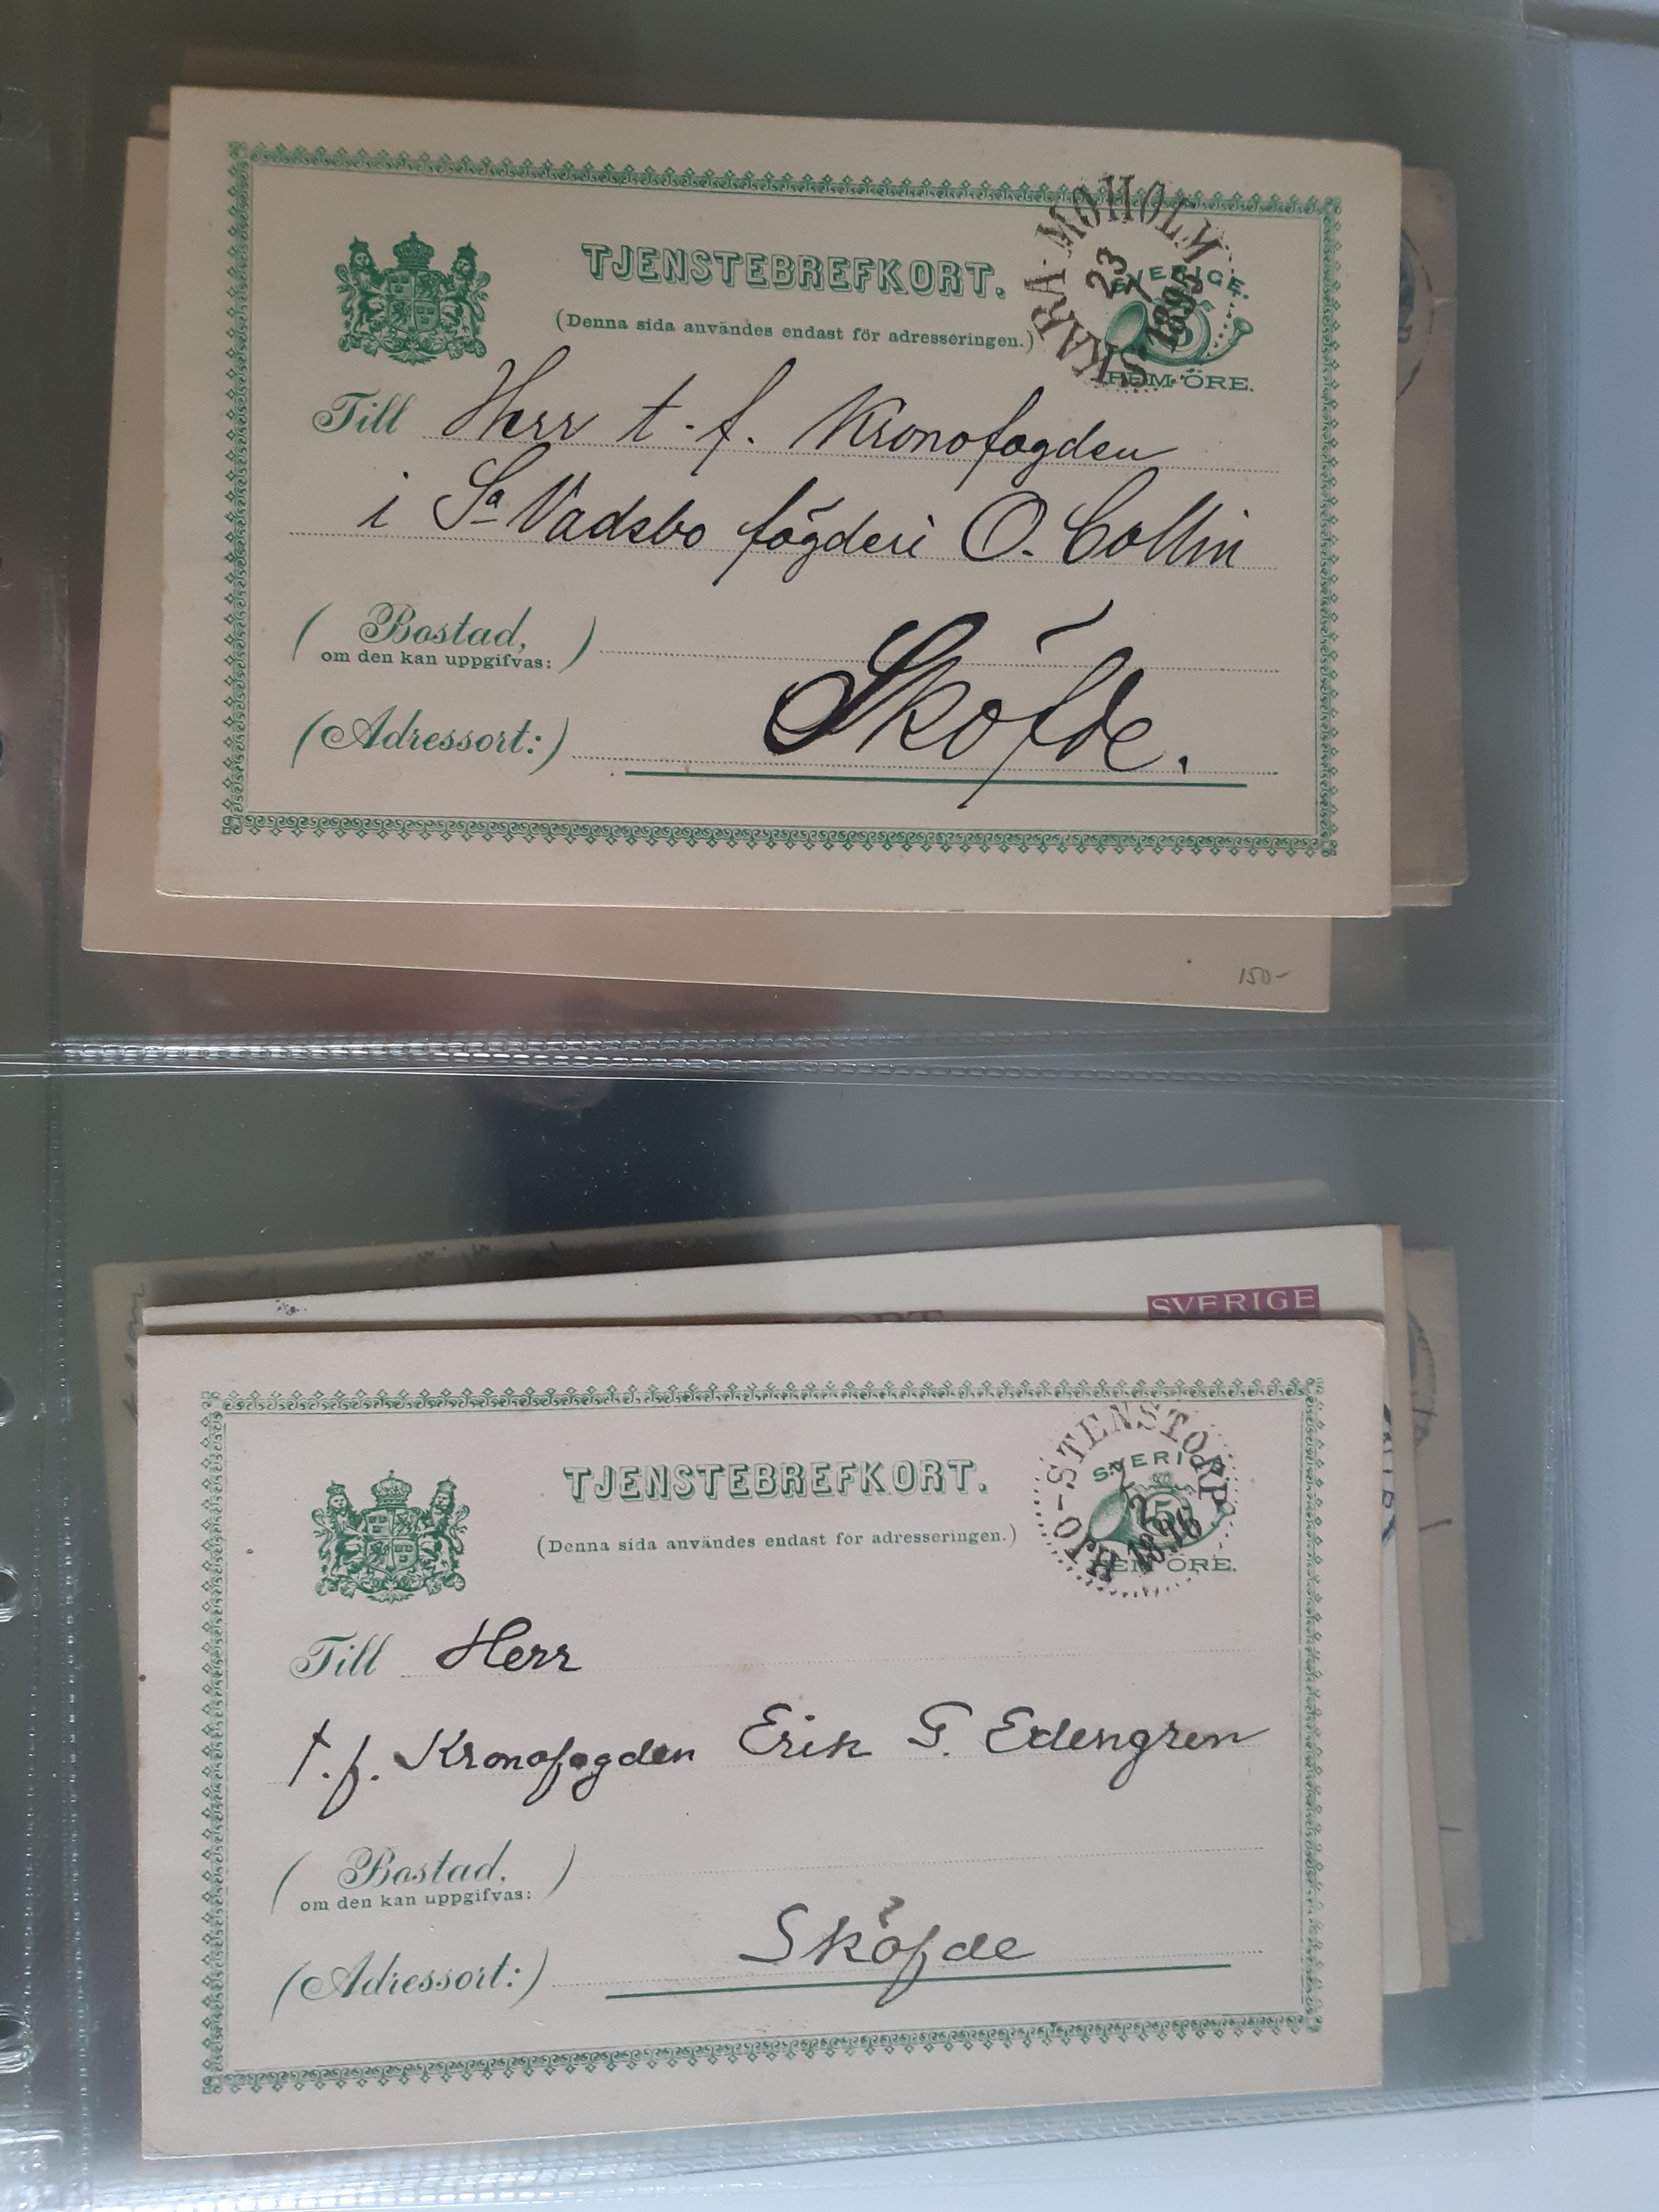 TJENSTEBREFKORT.
(Denna sida användes endast för adresseringen.)
SKARA-MOHOLM
23
1895
SVERIGE.
5
FEM ÖRE.
Till Herr t.f. Kronofogden
i Sa Vadsbo fögderi O. Collin
(Bostad,
om den kan uppgifvas:)
Sköfde.
(Adressort:)
150-
SVERIGE
TJENSTEBREFKORT.
(Denna sida användes endast för adresseringen.)
HJO-STENSTORP
2
1896
SVERIGE
5
FEM ÖRE.
Till Herr
t.f. Kronofogden Erik G. Edengren
(Bostad,
om den kan uppgifvas:)
(Adressort:) Sköfde